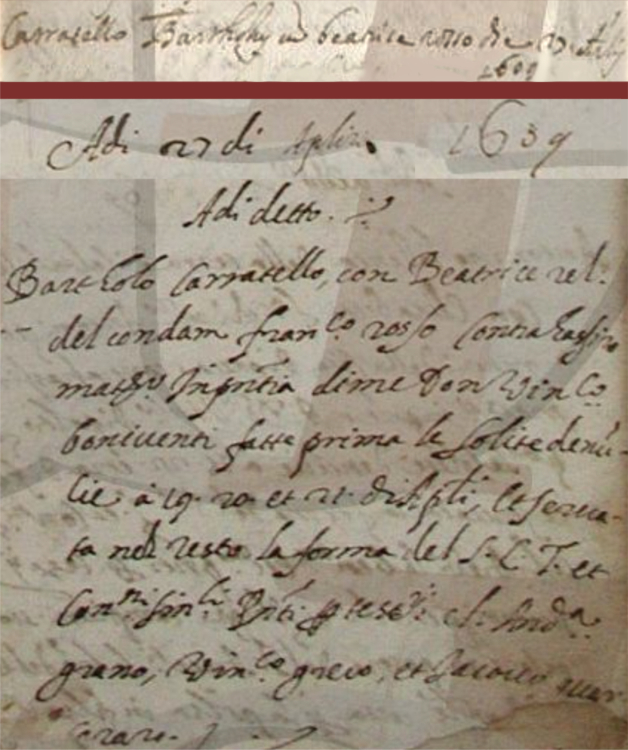 Carratello Barthõly cũ beatrice rosso die 27 Aplis
1639
Adi 27 di Aplis. 1639
Adi detto.
Bartholo Carratello, con Beatrice rel.
del condam fran.co rosso Contrahassiro
mat.o In pñtia di me Don Vin.co
boniventi fatte prima le solite denũ-
cie à 19. 20 et 21. di Apli, et serva-
ta nel resto la forma del S. C. T. et
Pñti p test.i cl. And.a
grano, Vin.co greco, et Jacovo mar-
ceraro.